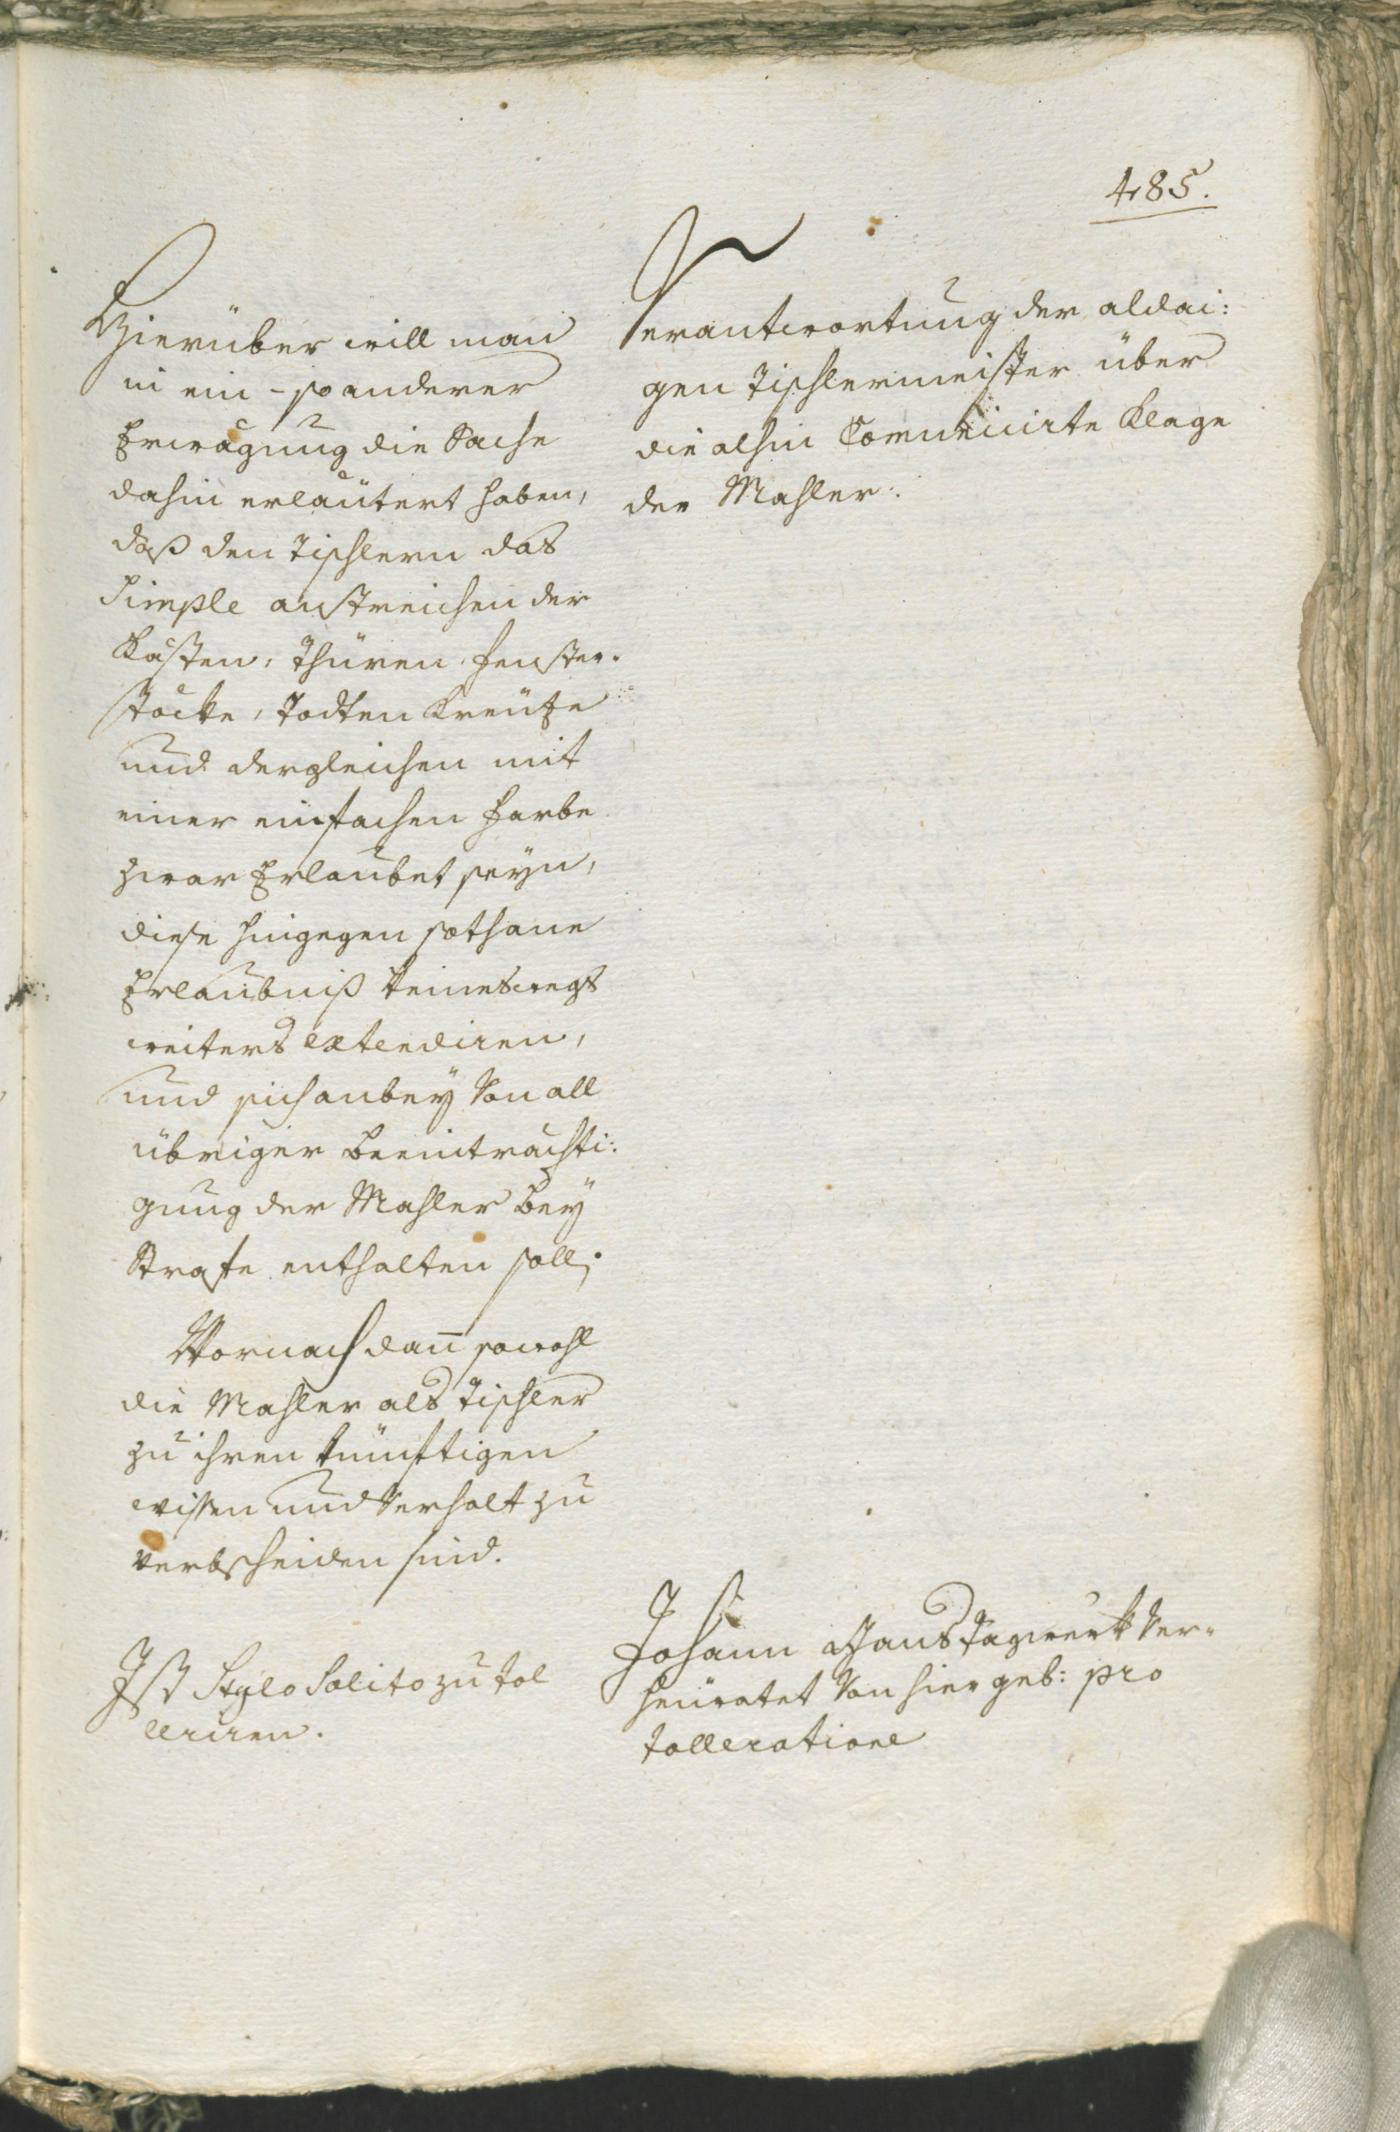 485.
Hierüber will man
in ein- so anderer
Erwägung die Sache
dahin erläutert haben,
daß den Tischlern das
Simple anstreichen der
Kästen, Thüren, Fenster-
stöcke, Todten Kreutze
und dergleichen mit
einer einfachen Farbe
zwar Erlaubet seyn,
diese hingegen sothane
Erlaubniß keineswegs
weiters extendiren,
und sich anbey Von all
übriger beeinträchti:
gung der Mahler bey
Strafe enthalten soll;
Wornach dan̄ sowohl
die Mahler als Tischler
zu ihren künftigen
wissen und Verhalt zu
verbscheiden sind.
Ist Stylo Solito zu tol
leriren.
Verantwortung der aldai:
gen Tischlermeister über
die alhin Comunicirte Klage
der Mahler.
Johann Tagwerk Ver-
heüratet Von hier geb: pro
tolleratione